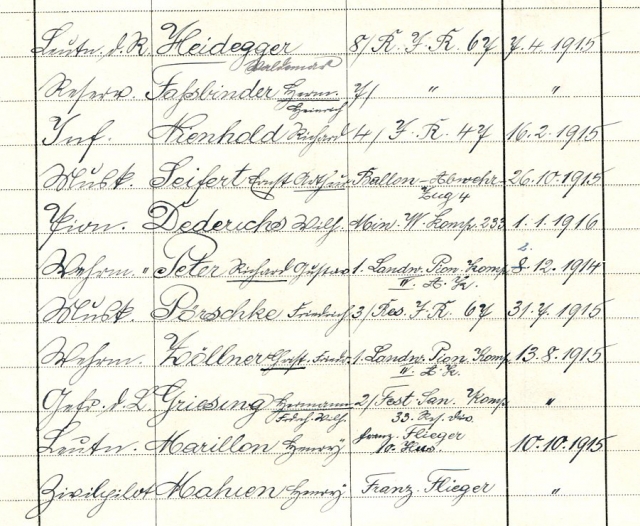 Leutn. d. R. Heidegger 8/ R. J. R. 67 7.4 1915
Waldemar
Reserv. Faßbinder Herm. 7/ " "
Heinrich
Inf. Nienhold Richard 4/ J. R. 47 16.2.1915
Musk. Seifert Ernst Arthur Ballon-Abwehr- 26.10.1915
Zug 4
Pion. Dederichs Wilh. Min. W. Komp. 233 1.1.1916
2.
Wehrm. " Peter Richard Gustav 1. Landw. Pion. Komp. 8.12.1914
A. K.
Musk. Pörschke Friedrich 3/ Res. J. R. 67 31.7.1915
Wehrm. Zöllner Christ. 1. Landw. Pion. Komp. 13.8.1915
A. K.
Gefr. d. L. Griesing Hermann 2/ Fest. San. Komp. "
Friedr. Wilh. 33. Res. Div.
Leutn. Marillon Henry franz. Flieger 10.10.1915
Zivilpilot Mahieu Henry Franz. Flieger "